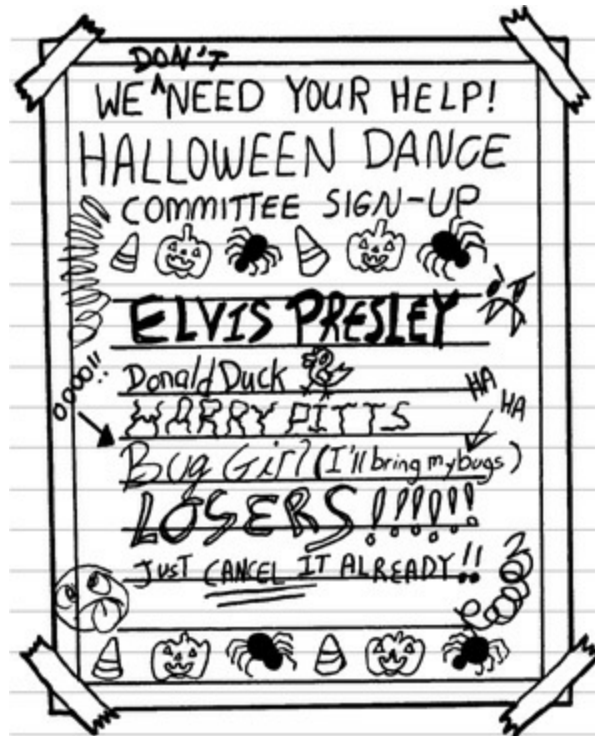 DON'T
WE ^ NEED YOUR HELP!
HALLOWEEN DANCE
COMMITTEE SIGN-UP
ELVIS PRESLEY
Donald Duck
HA
HA
HARRY PITTS
O,OOO!!
Bug Girl (I'll bring my bugs)
LOSERS!!!!!!
JUST CANCEL IT ALREADY!!